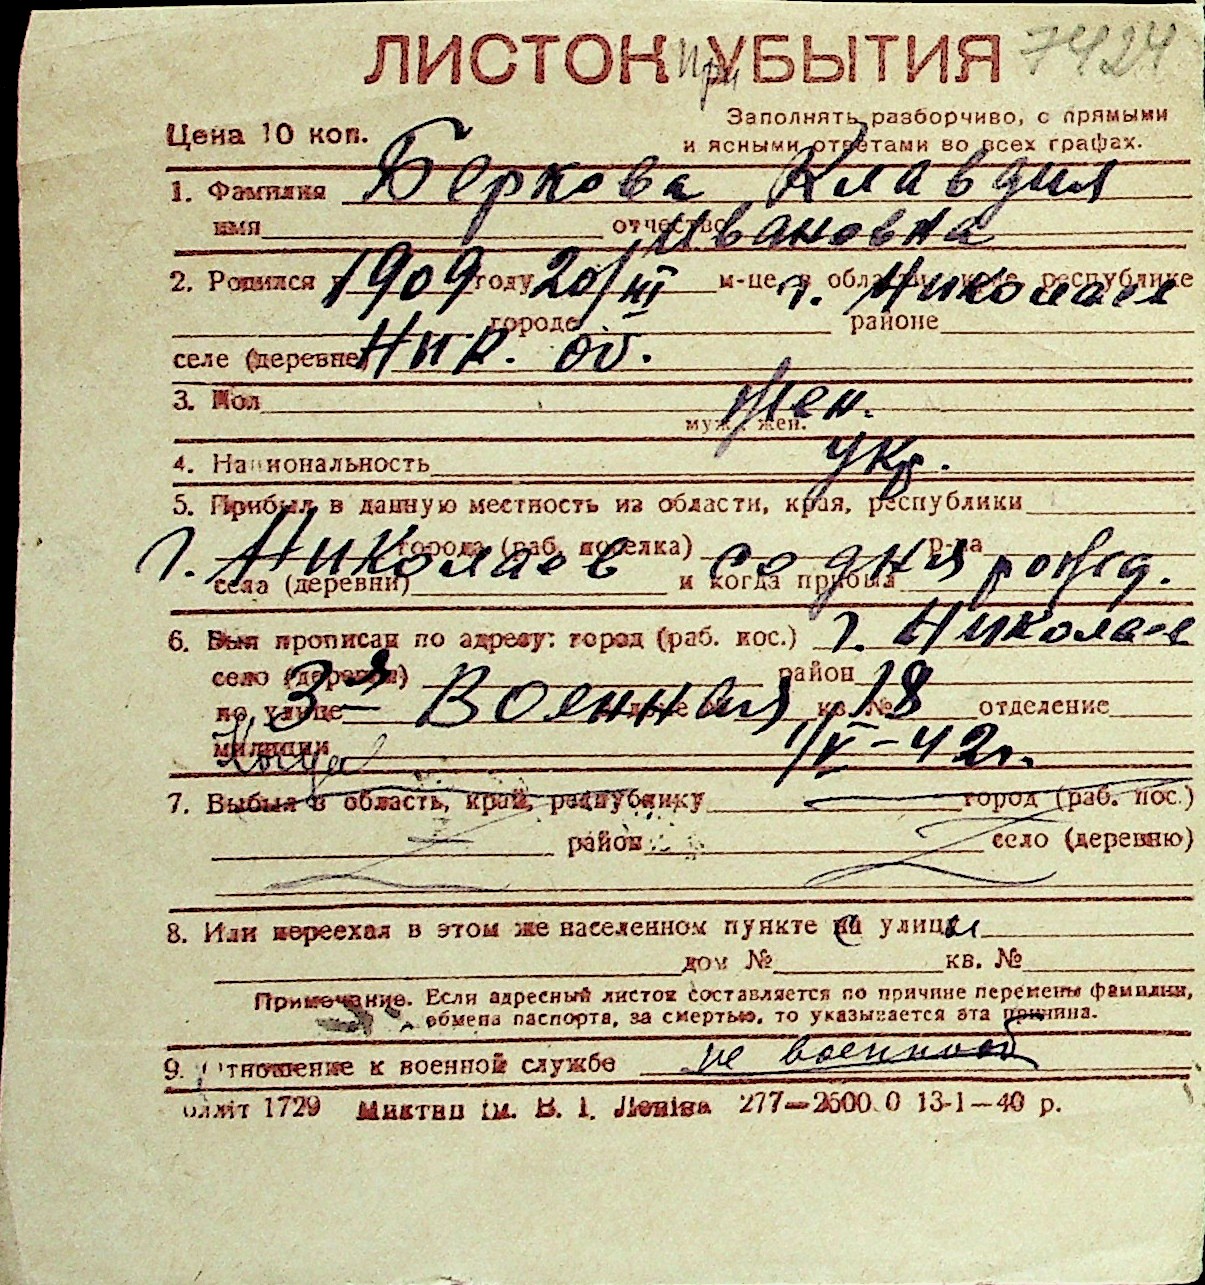 ЛИСТОК При УБЫТИЯ 7424
Заполнять разборчиво, с прямыми
Цена 10 коп. и ясными ответами во всех графах.
1. Фамилия Беркова Клавдия
имя отчество Ивановна
2. Родился в 1909 году 20/III м-це, в области, крае, республике г. Николаев
городе районе
селе (деревне) Ник. об.
3. Пол жен.
муж., жен.
4. Национальность укр.
5. Прибыл в данную местность из области, края, республики
г. Николаев города (раб. поселка) со дня р-на рожд.
села (деревни) и когда прибыл
6. Был прописан по адресу: город (раб. пос.) г. Николаев
село (деревня) район
по улице 3-я Военная кв. № 18 отделение
милиции Когда 1/V-42г.
7. Выбыл в область, край, республику город (раб. пос.)
район село (деревню)
8. Или переехал в этом же населенном пункте с улицы
дом № кв. №
Примечание. Если адресный листок составляется по причине перемены фамилии,
обмена паспорта, за смертью, то указывается эта причина.
9. Отношение к военной службе не военнооб
1729 Миктип ім. В. І. Леніна 277—2500.0 13-1—40 р.